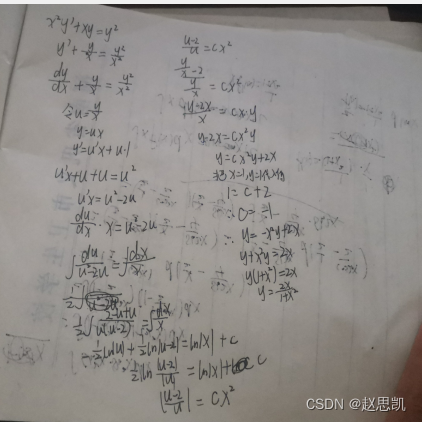 x²y'+xy=y²
y'+y/x=y²/x²
dy/dx+y/x=y²/x²
令u=y/x
y=ux
y'=u'x+u·1
u'x+u+u=u²
u'x=u²-2u
du/dx·x=u²-2u
∫du/(u²-2u)=∫dx/x
-½ln|u|+½ln|u-2|=ln|x|+c
½ln|u-2|/|u|=ln|x|+c
|u-2/u|=cx²
u-2/u=cx²
(y/x-2)/(y/x)=cx²
y-2x/x=cx·y
y-2x=cx²y
y=cx²y+2x
1=c+2
∴c=-1
∴y=-x²y+2x
y+x²y=2x
y(1+x²)=2x
y=2x/1+x²
CSDN @赵思凯